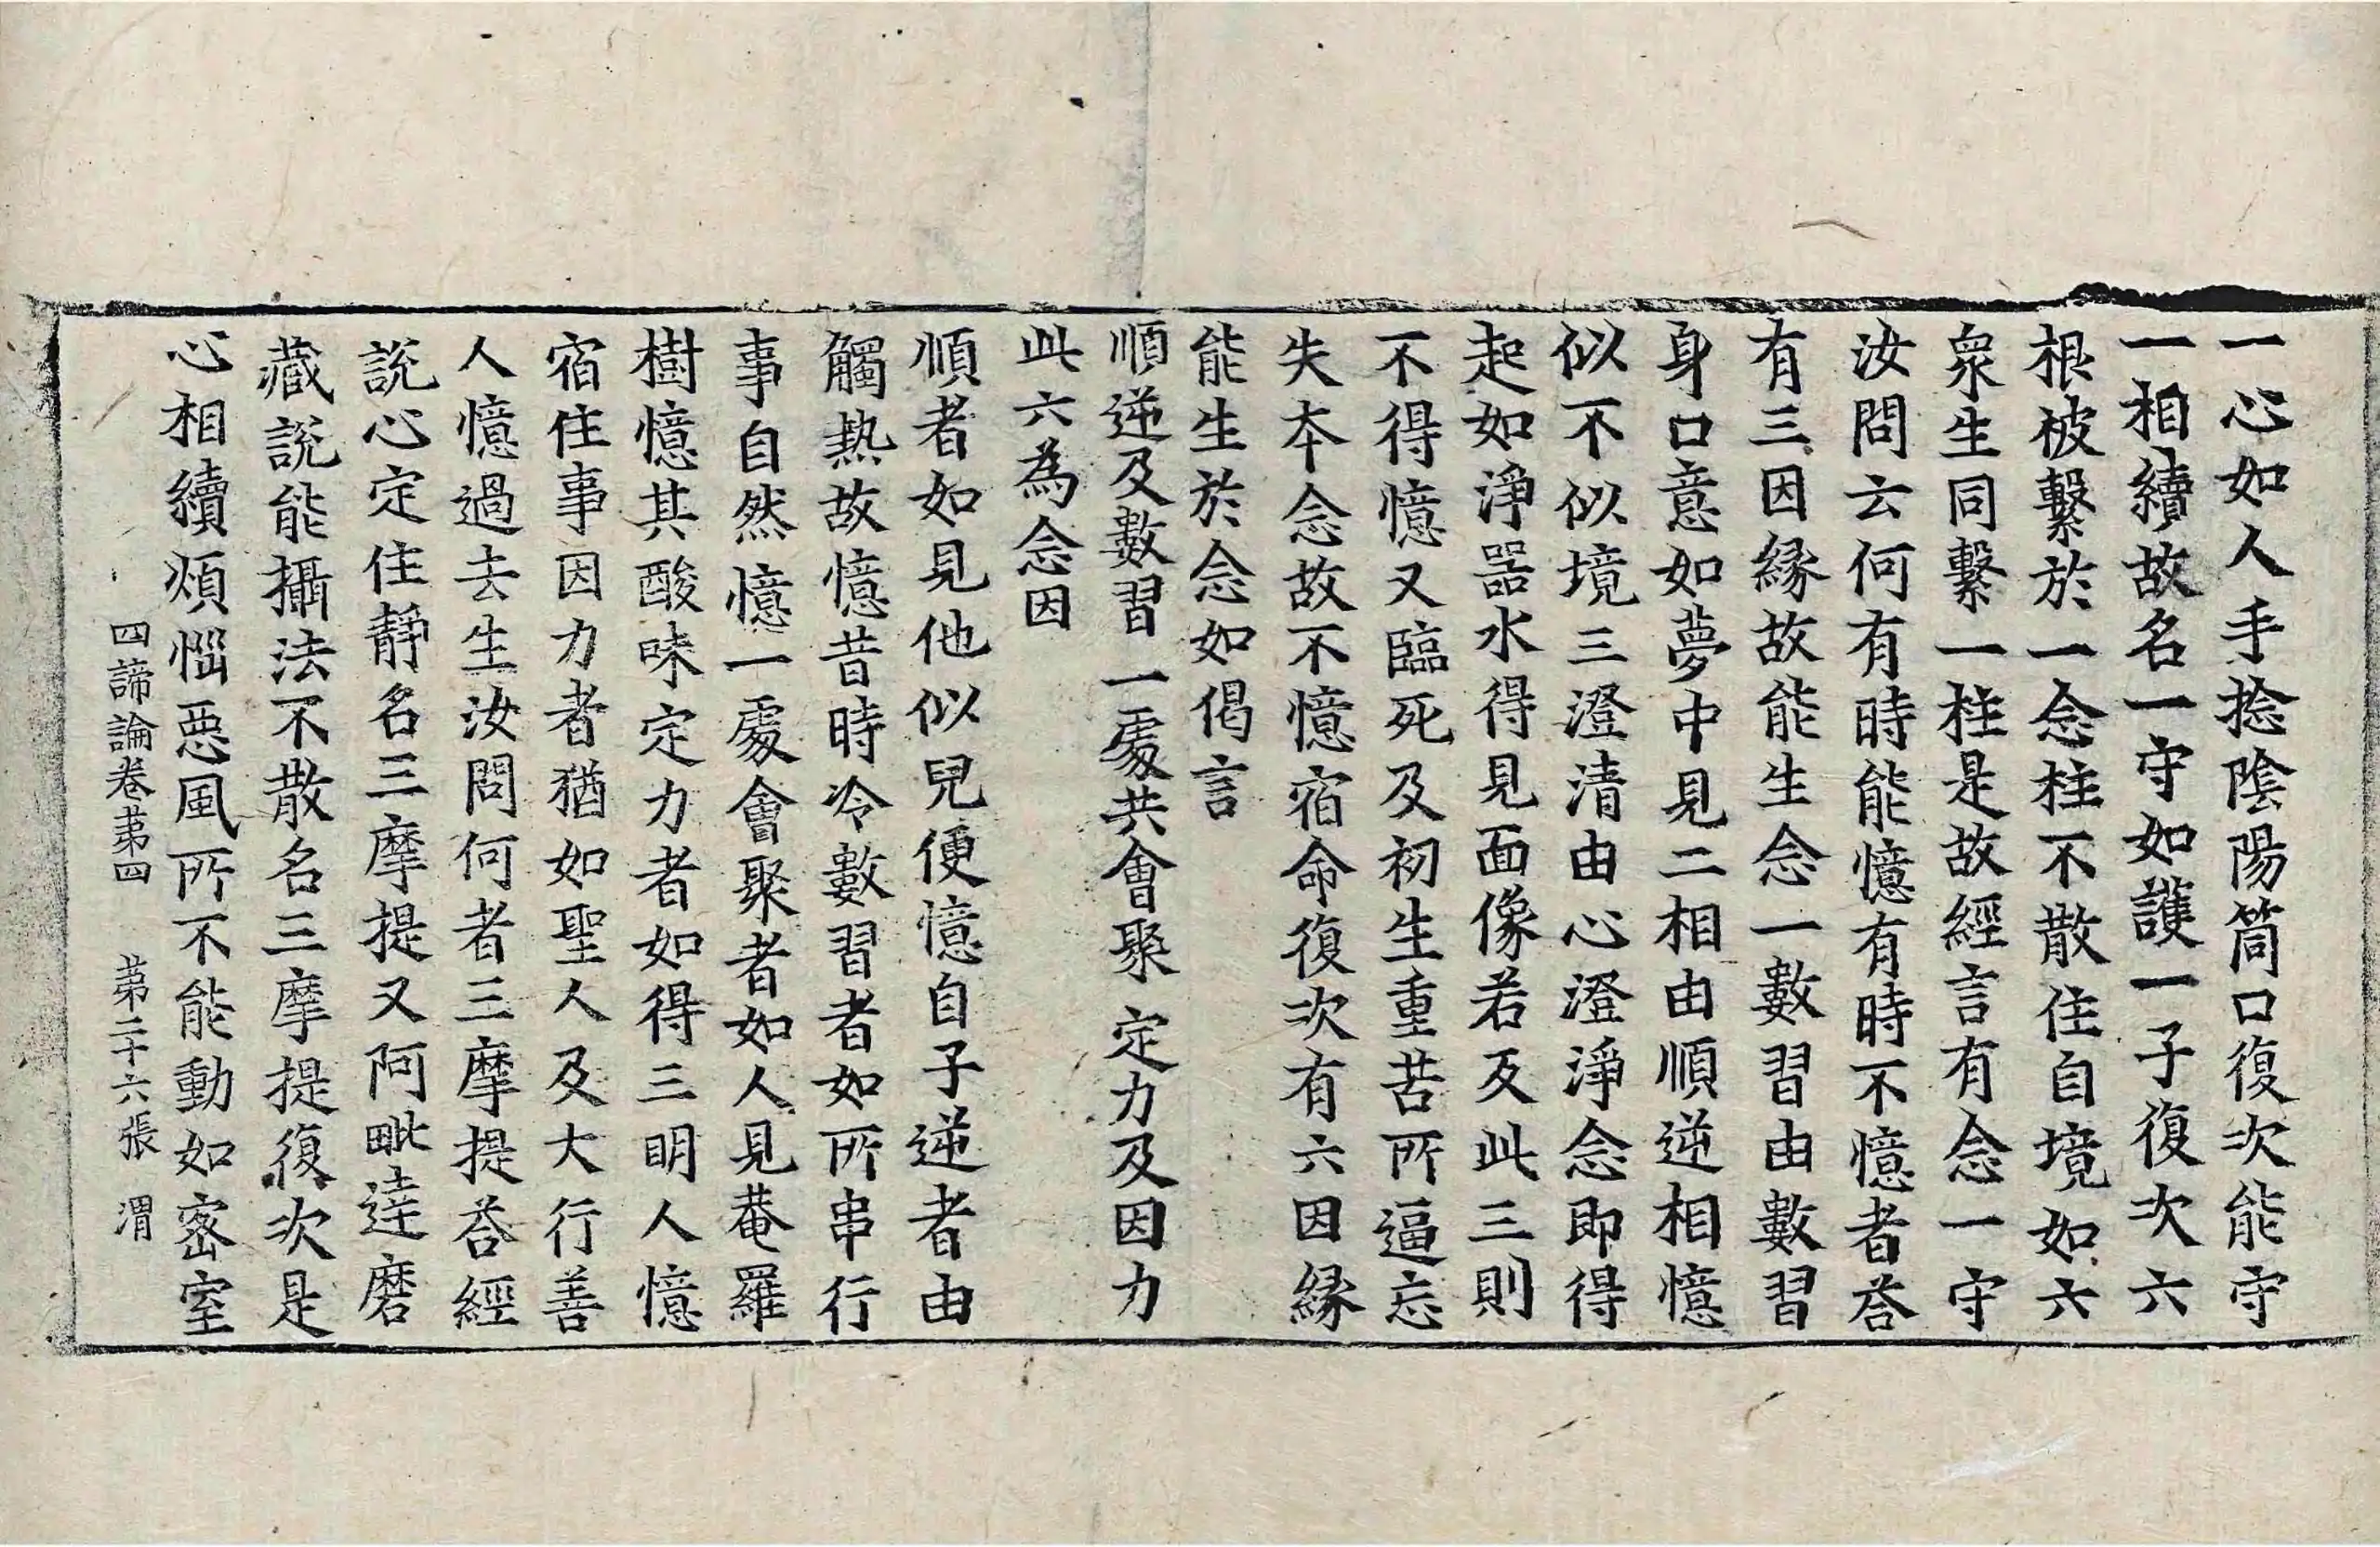 一心如人手捻陰陽筒口復次能守
一相續故名一守如護一子復次六
根被繫於一念柱不散住自境如六
衆生同繫一柱是故經言有念一守
汝問云何有時能憶有時不憶者荅
有三因緣故能生念一數習由數習
身口意如夢中見二相由順逆相憶
似不似境三澄清由心澄淨念即得
起如淨噐水得見面像若反此三則
不得憶又臨死及初生重苦所逼忘
失夲念故不憶宿命復次有六因緣
能生於念如偈言
順逆及數習　一處共會聚　定力及因力
此六為念因
順者如見他似兒便憶自子逆者由
觸熱故憶昔時冷數習者如所串行
事自然憶一處會聚者如人見菴羅
樹憶其酸味定力者如得三明人憶
宿住事因力者猶如聖人及大行善
人憶過去生汝問何者三摩提荅經
說心定住靜名三摩提又阿毗達磨
藏說能攝法不散名三摩提復次是
心相續煩惱惡風所不能動如密室
四諦論卷苐四　苐二十六張　渭